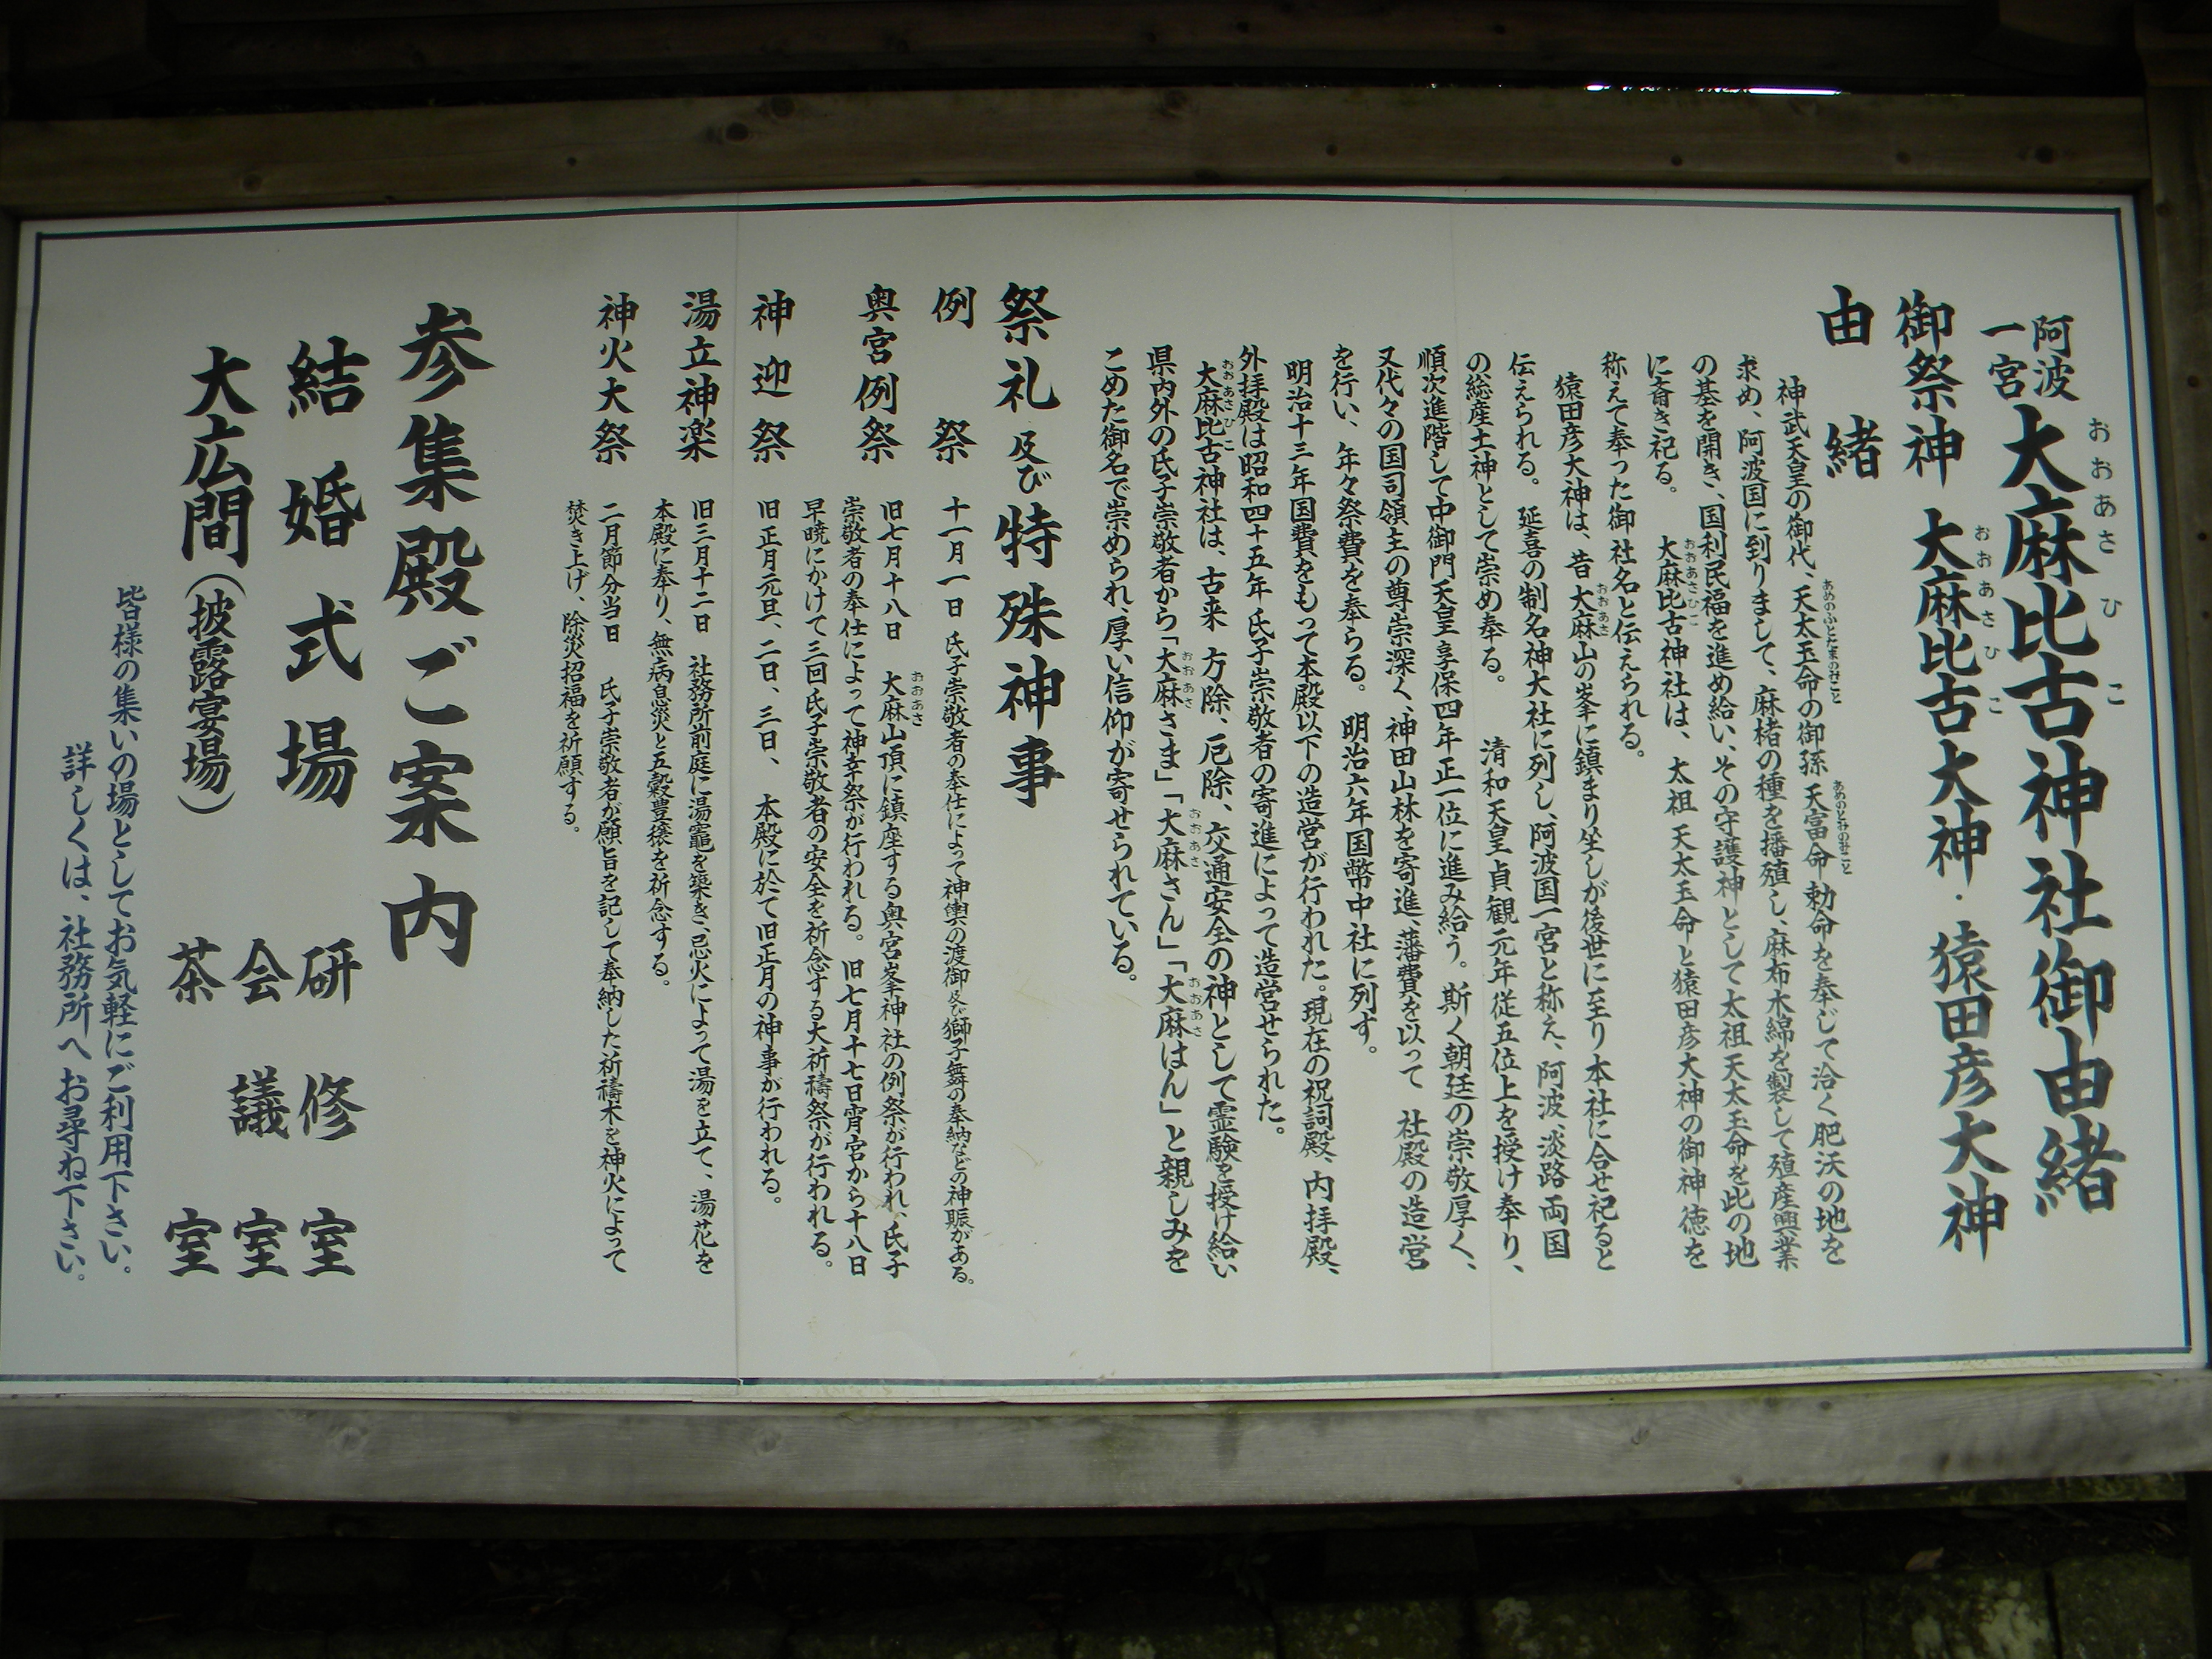 阿波一宮 大麻比古神社御由緒
おおあさひこ
御祭神 大麻比古大神・猿田彦大神
おおあさひこ
由緒
神武天皇の御代、天太玉命の御孫 天富命勅命を奉じて洽く肥沃の地を
あめのふとたまのみこと あめのとみのみこと
求め、阿波国に到りまして、麻楮の種を播殖し、麻布木綿を製して殖産興業
の基を開き、国利民福を進め給い、その守護神として太祖天太玉命を此の地
に斎き祀る。 大麻比古神社は、太祖 天太玉命と猿田彦大神の御神徳を
おおあさひこ
称えて奉った御社名と伝えられる。
猿田彦大神は、昔大麻山の峯に鎮まり坐しが後世に至り本社に合せ祀ると
おおあさ
伝えられる。 延喜の制名神大社に列し、阿波国一宮と称え、阿波、淡路両国
の総産土神として崇め奉る。 清和天皇貞観元年従五位上を授け奉り、
順次進階して中御門天皇享保四年正一位に進み給う。斯く朝廷の崇敬厚く、
又代々の国司領主の尊崇深く、神田山林を寄進、藩費を以って 社殿の造営
を行い、年々祭費を奉らる。明治六年国幣中社に列す。
明治十三年国費をもって本殿以下の造営が行われた。現在の祝詞殿、内拝殿、
外拝殿は昭和四十五年氏子崇敬者の寄進によって造営せられた。
大麻比古神社は、古来 方除、厄除、交通安全の神として霊験を授け給い
おおあさひこ
県内外の氏子崇敬者から「大麻さま」「大麻さん」「大麻はん」と親しみを
おおあさ おおあさ おおあさ
こめた御名で崇められ、厚い信仰が寄せられている。
祭礼及び特殊神事
例祭 十一月一日 氏子崇敬者の奉仕によって神輿の渡御及び獅子舞の奉納などの神賑がある。
奥宮例祭 旧七月十八日 大麻山頂に鎮座する奥宮峯神社の例祭が行われ、氏子
おおあさ
崇敬者の奉仕によって神幸祭が行われる。旧七月十七日宵宮から十八日
早暁にかけて三回氏子崇敬者の安全を祈念する大祈禱祭が行われる。
神迎祭 旧正月元旦、二日、三日、 本殿に於て旧正月の神事が行われる。
湯立神楽 旧三月十二日 社務所前庭に湯竈を築き、忌火によって湯を立て、湯花を
本殿に奉り、無病息災と五穀豊穣を祈念する。
神火大祭 二月節分当日 氏子崇敬者が願旨を記して奉納した祈禱木を神火によって
焚き上げ、除災招福を祈願する。
参集殿ご案内
結婚式場 研修室
大広間(披露宴場) 会議室
茶室
皆様の集いの場としてお気軽にご利用下さい。
詳しくは、社務所へお尋ね下さい。